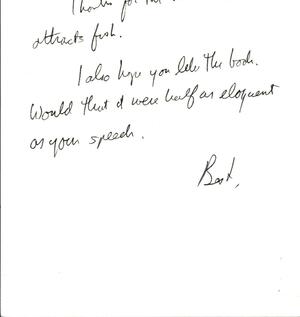 Thanks for the
attracts fish.
I also hope you like the book.
Would that it were half as eloquent
as your speech.
Best,